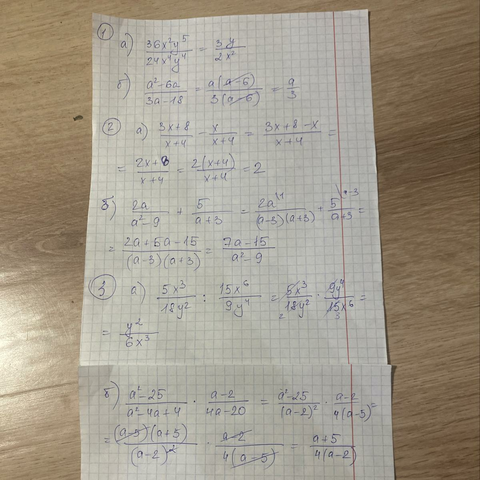 1 а) 36x²y⁵/24x⁴y⁴ = 3y/2x²
б) a²-6a/3a-18 = a(a-6)/3(a-6) = a/3
2 а) 3x+8/x+4 - x/x+4 = 3x+8-x/x+4 =
= 2x+8/x+4 = 2(x+4)/x+4 = 2
б) 2a/a²-9 + 5/a+3 = 2a\1/(a-3)(a+3) + 5\a-3/a+3 =
= 2a+5a-15/(a-3)(a+3) = 7a-15/a²-9
3 а) 5x³/18y² : 15x⁶/9y⁴ = 5x³/18y² · 9y⁴/15x⁶ =
= y²/6x³
б) a²-25/a²-4a+4 · a-2/4a-20 = a²-25/(a-2)² · a-2/4(a-5) =
= (a-5)(a+5)/(a-2)² · a-2/4(a-5) = a+5/4(a-2)